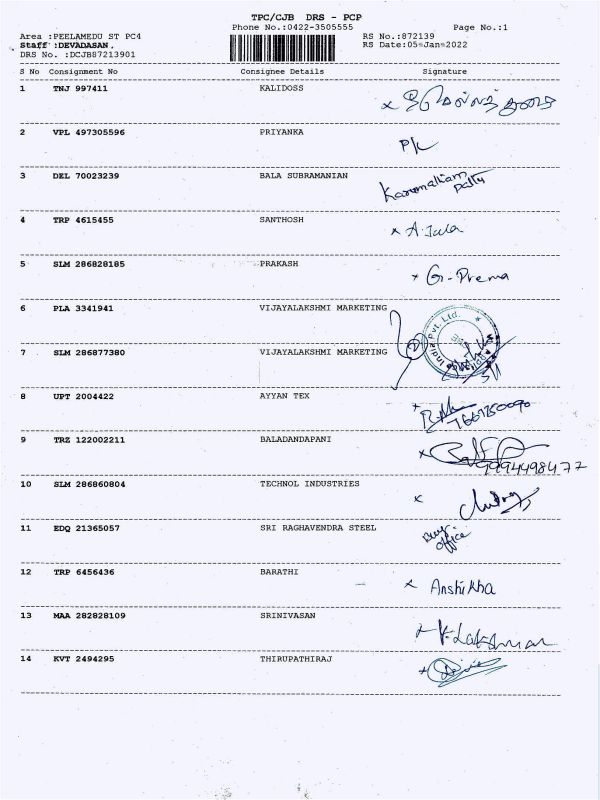 TPC/CJB DRS - PCP
Phone No.:0422-3505555 Page No.:1
Area :PEELAMEDU ST PC4 RS No.:872139
Staff :DEVADASAN, RS Date:05-Jan-2022
DRS No. :DCJB87213901
S No Consignment No Consignee Details Signature
1 TNJ 997411 KALIDOSS
2 VPL 497305596 PRIYANKA
3 DEL 70023239 BALA SUBRAMANIAN
4 TRP 4615455 SANTHOSH
5 SLM 286828185 PRAKASH x G. Prema
6 PLA 3341941 VIJAYALAKSHMI MARKETING
India Pvt. Ltd.
7 SLM 286877380 VIJAYALAKSHMI MARKETING
8 UPT 2004422 AYYAN TEX
9 TRZ 122002211 BALADANDAPANI
9994498477
10 SLM 286860804 TECHNOL INDUSTRIES
11 EDQ 21365057 SRI RAGHAVENDRA STEEL
office
12 TRP 6456436 BARATHI x Anshikha
13 MAA 282828109 SRINIVASAN
14 KVT 2494295 THIRUPATHIRAJ